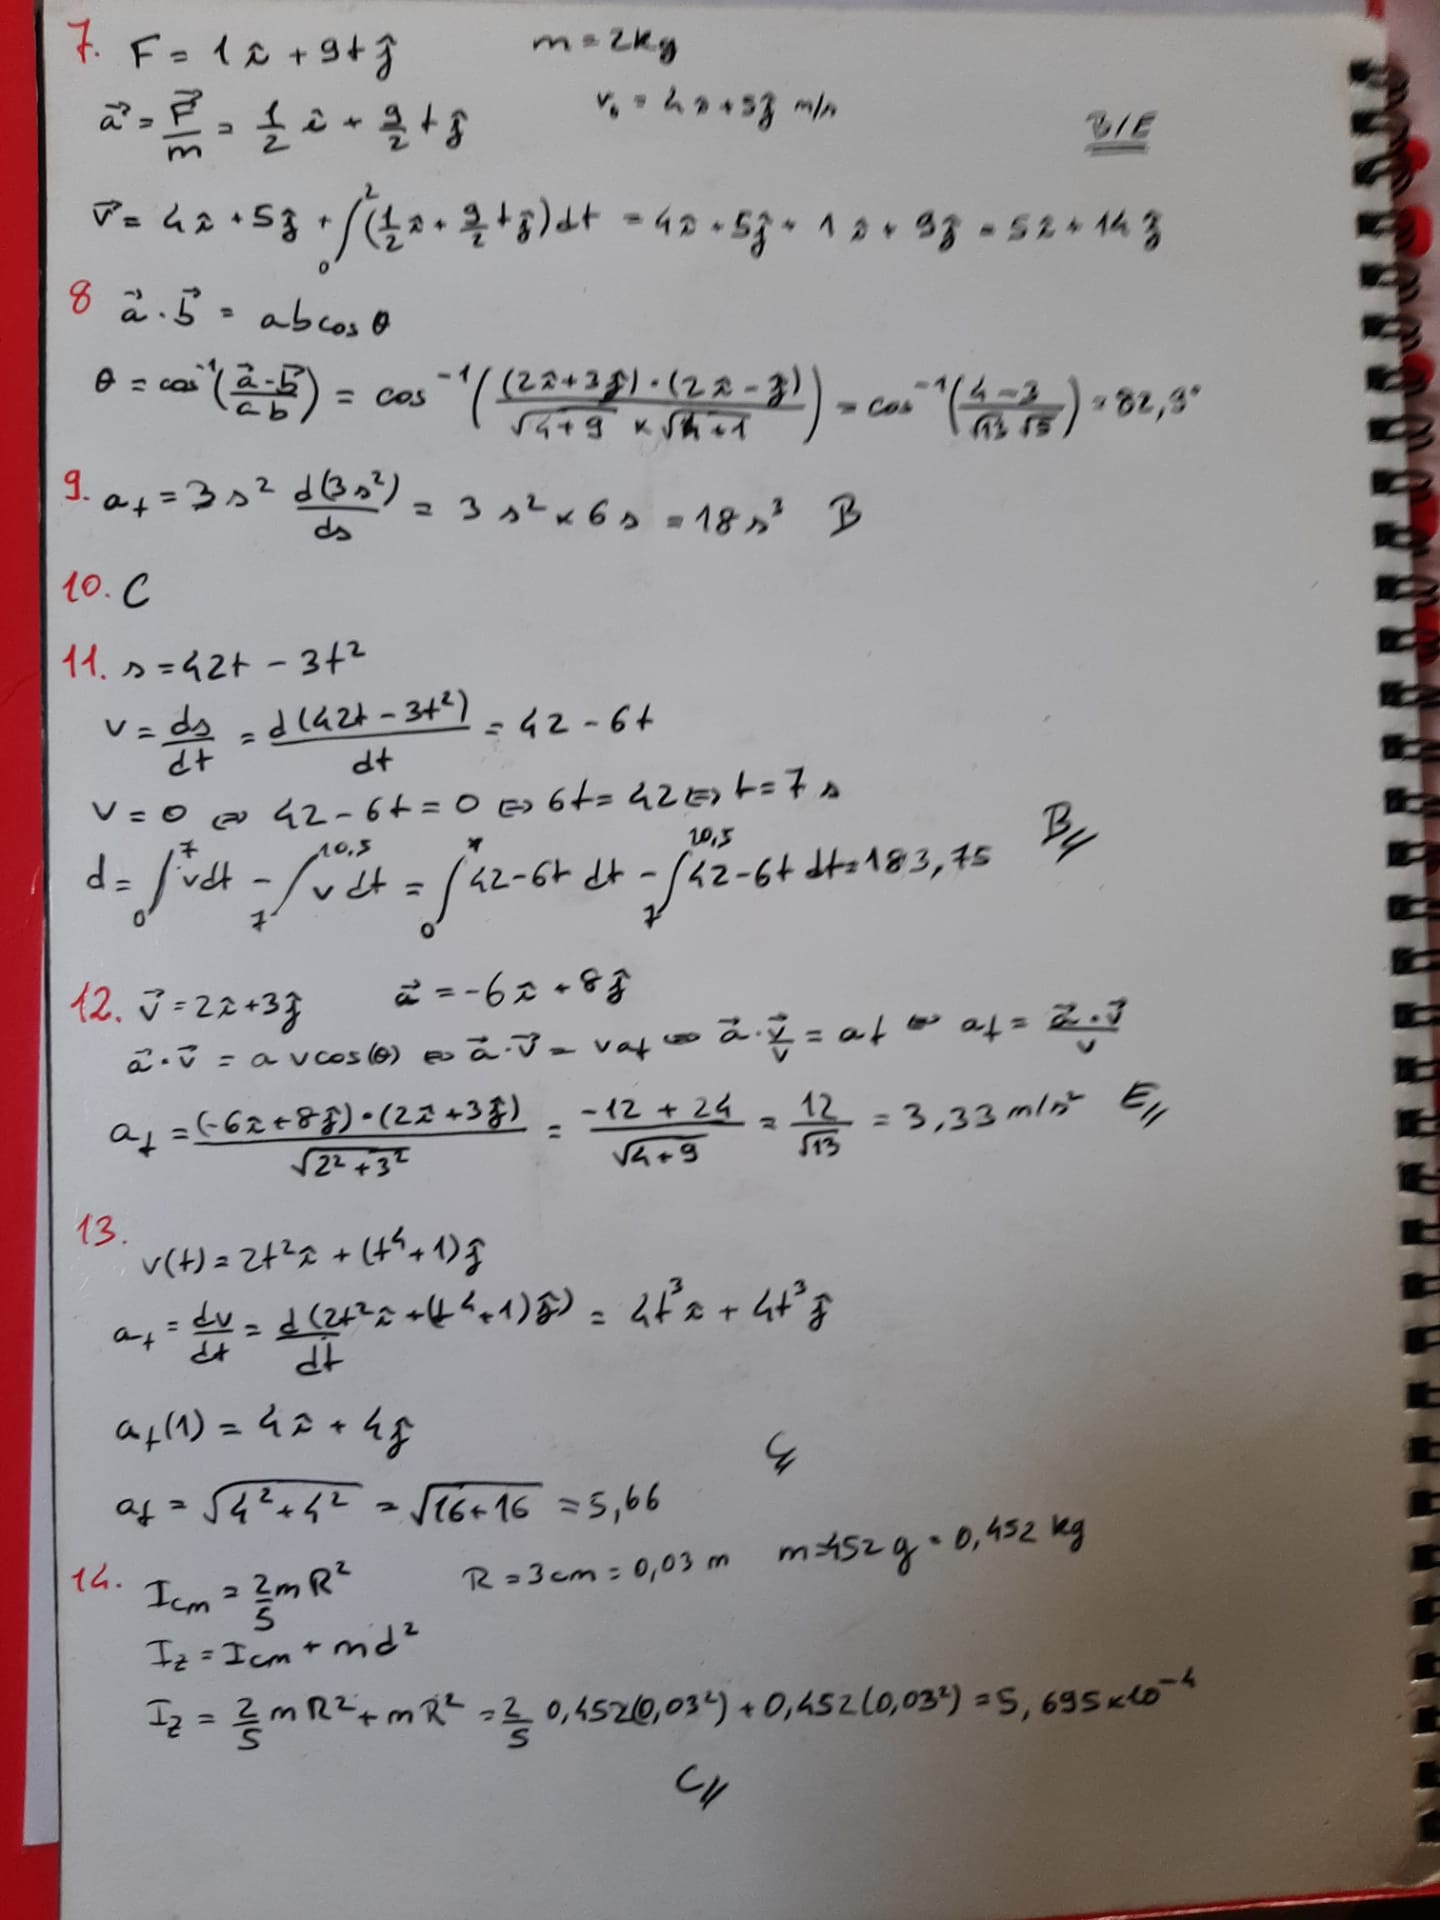 7. F = 1 î + 9t ĵ m = 2kg
a⃗ = F⃗/m = 1/2 î + 9/2 t ĵ v₀ = 4 î + 5ĵ m/s B/E
v⃗ = 4î + 5ĵ + ∫₀² (1/2 î + 9/2 t ĵ) dt = 4î + 5ĵ + 1 î + 9ĵ = 5î + 14 ĵ
8 a⃗ . b⃗ = a b cos θ
θ = cos⁻¹(a⃗ . b⃗ / a b) = cos⁻¹((2î+3ĵ) . (2î - ĵ) / √4+9 × √4+1) = cos⁻¹(4-3 / √13 √5) = 82,9°
9. at = 3 s² d(3s²)/ds = 3 s² × 6 s = 18 s³ B
10. C
11. s = 42t - 3t²
v = ds/dt = d(42t - 3t²)/dt = 42 - 6t
v = 0 ⇔ 42 - 6t = 0 ⇔ 6t = 42 ⇔ t = 7 s
d = ∫₀⁷ vdt - ∫₇^10,5 v dt = ∫₀⁷ 42-6t dt - ∫₇^10,5 42-6t dt = 183,75 B//
12. v⃗ = 2î+3ĵ a⃗ = -6î + 8ĵ
a⃗ . v⃗ = a v cos(θ) ⇔ a⃗ . v⃗ = v at ⇔ a⃗ . v⃗/v = at ⇔ at = a⃗ . v⃗/v
at = (-6î+8ĵ) . (2î+3ĵ) / √2²+3² = -12 + 24 / √4+9 = 12/√13 = 3,33 m/s² E//
13.
v(t) = 2t² î + (t⁴+1)ĵ
at = dv/dt = d(2t² î + (t⁴+1)ĵ)/dt = 4t³ î + 4t³ ĵ
at(1) = 4î + 4ĵ
at = √4²+4² = √16+16 = 5,66 C//
14. Icm = 2/5 m R² R = 3cm = 0,03 m m=452 g = 0,452 kg
Iz = Icm + md²
Iz = 2/5 m R² + m R² = 2/5 0,452(0,03²) + 0,452(0,03²) = 5,695×10⁻⁴
C//